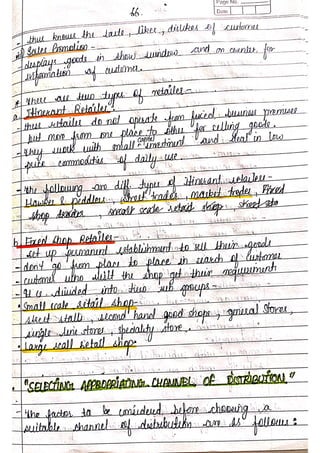 Page No.
Date
66.
- thus knows the taste, likes, dislikes of customer
Sales Promotion -
- displays goods in show windows and on counter for
information of customer.
* There are two types of retailer -
Itinerant Retailer :
- these retailer do not operate from fixed business premises
but move from one place to other for selling goods.
- they work with small investment and deal in low
price commodities of daily use.
- the following are diff types of itinerant retailers -
Hawker & peddlers, street trader, market trader, Fixed
shop small scale retail shop,
b. Fixed shop Retailer -
- set up permanent establishment to sell their goods
- don't go from place to place in search of customer
- customer who visit the shop get their requirement
- It is divided into two sub groups -
• Small scale retail shop -
street stalls, second hand good shops, general stores,
single line stores, speciality store.
• Large scall retail shop.
• "SELECTING APPROPRIATING CHANNEL OF DISTRIBUTION"
- the factor to be considered before choosing a
suitable channel of distribution are as follows :